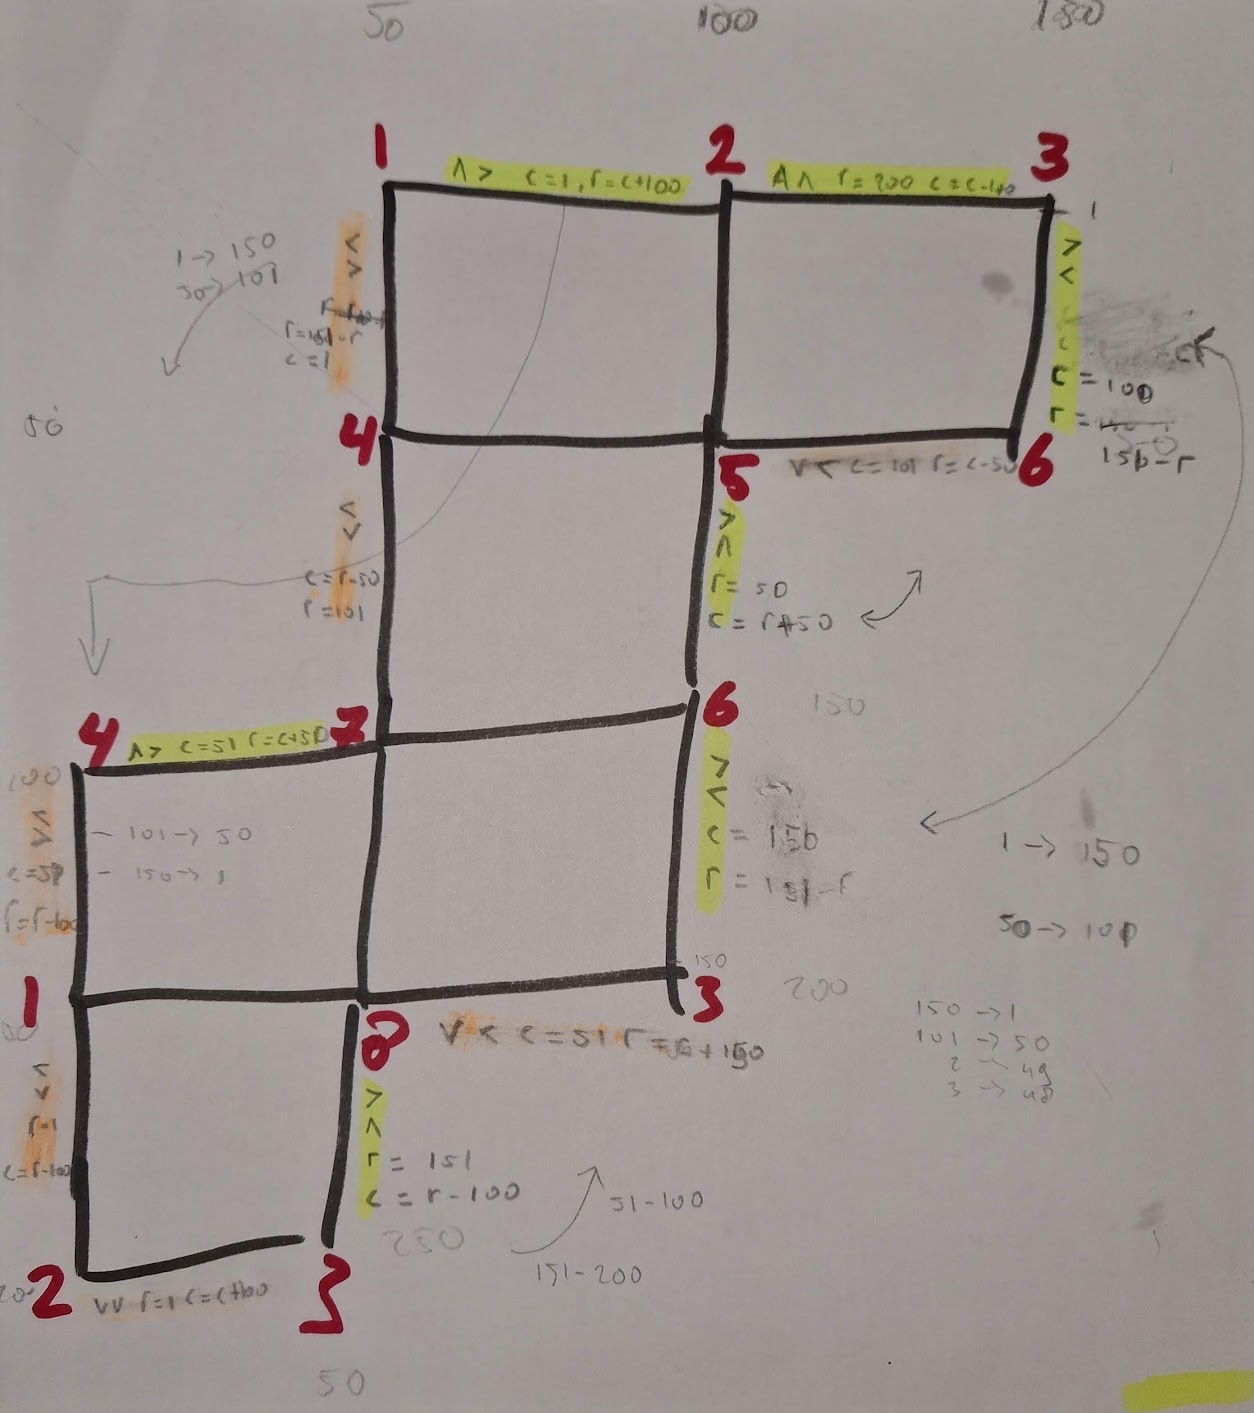 50 100 150
1 2 3
∧ > c=1, r=c+100
∧ ∧ r=200 c=c-100
1
1 -> 150
50 -> 101
< >
r=151-r
c=1
> <
c = 100
r =
151-r
50
4 5 6
v < c=101 r=c-50
< v
c=r-50
r=101
> ∧
r= 50
c= r+50
4 7 6
150
∧> c=51 r=c+50
100
< v
- 101 -> 50
- 150 -> 1
r=r-100
> <
c = 150
r = 151-r
1 -> 150
50 -> 101
150
1 8 3
200
v < c=51 r=c+150
150 -> 1
101 -> 50
2 -> 49
3 -> 48
< v
r=1
c=r-100
> ∧
r= 151
c = r-100
250
51-100
151-200
2 3
vv r=1 c=c+100
50